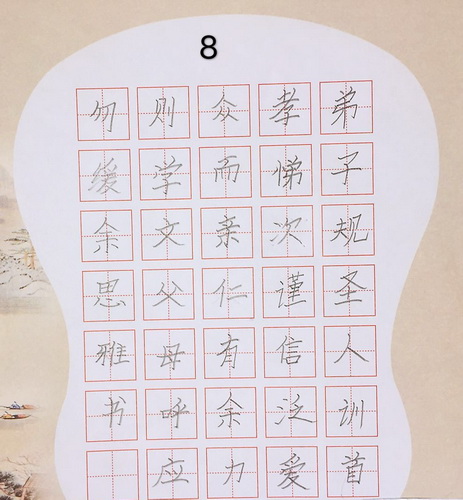 8
弟子规圣人训首
孝悌次谨信泛爱
众而亲仁有余力
则学文父母呼应
勿缓余思雅书